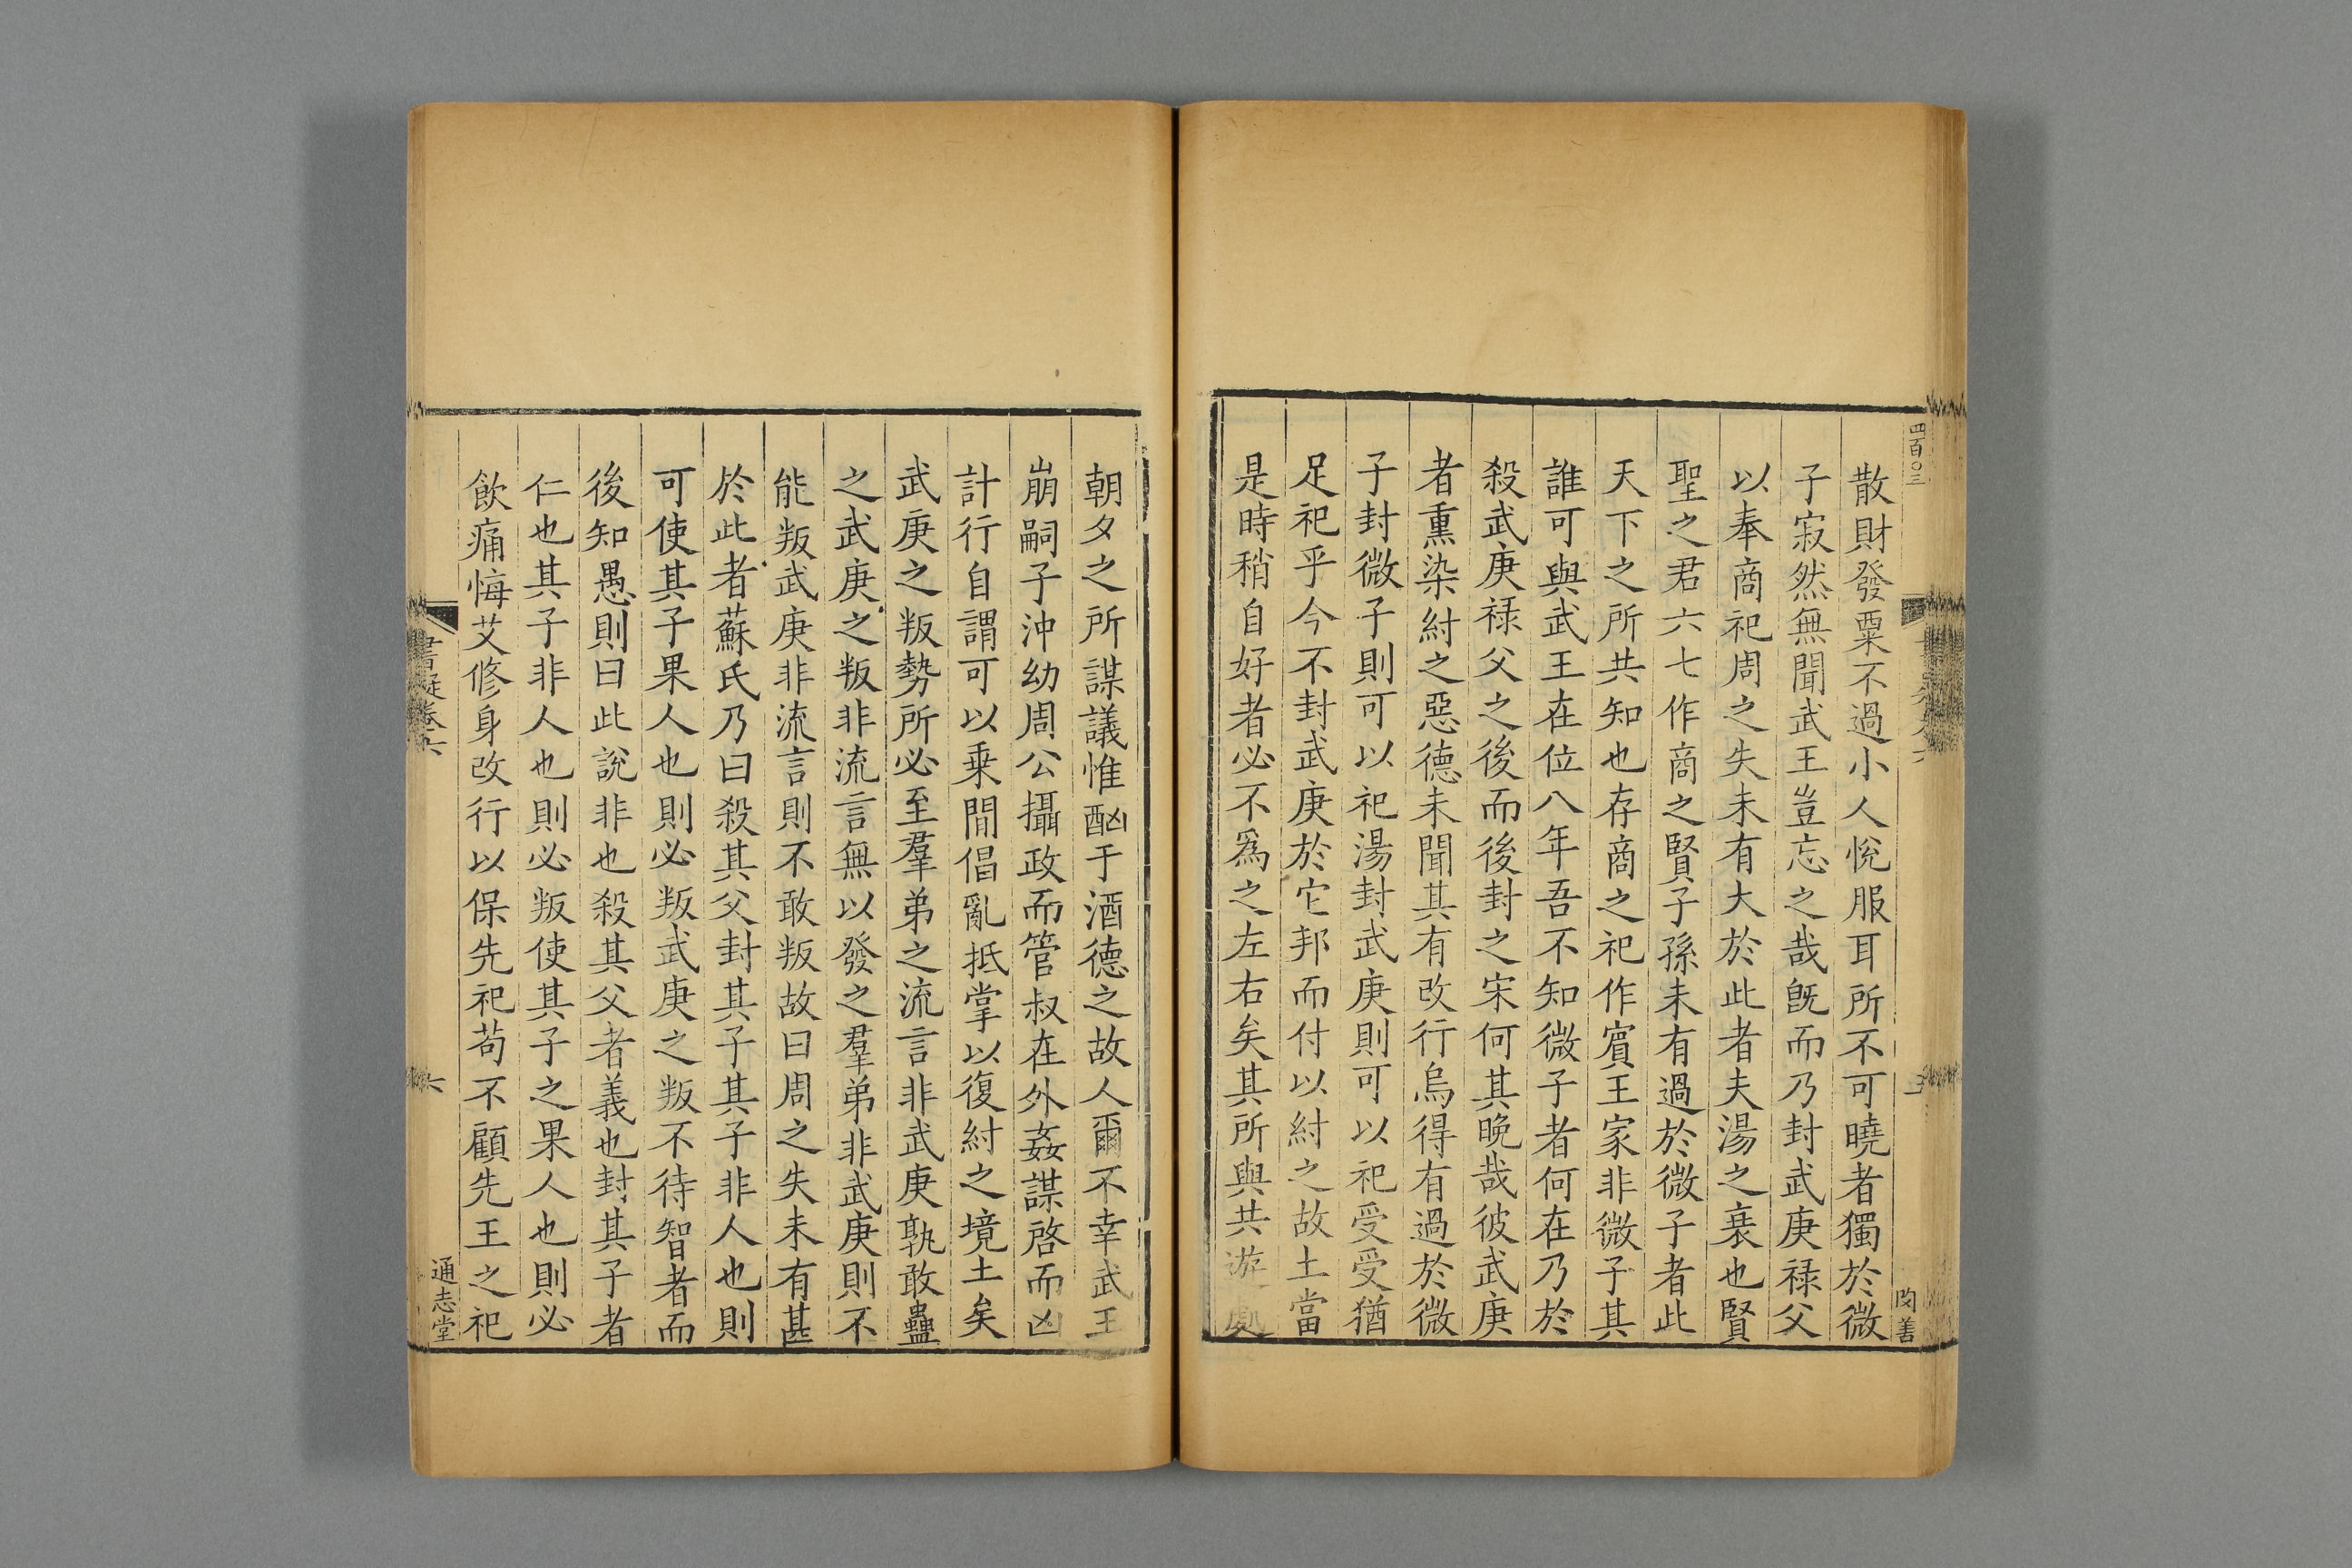 四百○三
散財發粟不過小人悅服耳所不可曉者獨於微
子寂然無聞武王豈忘之哉旣而乃封武庚祿父
以奉商祀周之失未有大於此者夫湯之衰也賢
聖之君六七作商之賢子孫未有過於微子者此
天下之所共知也存商之祀作賓王家非微子其
誰可與武王在位八年吾不知微子者何在乃於
殺武庚祿父之後而後封之宋何其晚哉彼武庚
者熏染紂之惡德未聞其有改行烏得有過於微
子封微子則可以祀湯封武庚則可以祀受受猶
足祀乎今不封武庚於它邦而付以紂之故土當
是時稍自好者必不爲之左右矣其所與共游處
朝夕之所謀議惟酗于酒德之故人爾不幸武王
崩嗣子沖幼周公攝政而管叔在外姦謀啓而凶
計行自謂可以乗間倡亂抵掌以復紂之境土矣
武庚之叛勢所必至羣弟之流言非武庚孰敢蠱
之武庚之叛非流言無以發之羣弟非武庚則不
能叛武庚非流言則不敢叛故曰周之失未有甚
於此者蘇氏乃曰殺其父封其子其子非人也則
可使其子果人也則必叛武庚之叛不待智者而
後知愚則曰此說非也殺其父者義也封其子者
仁也其子非人也則必叛使其子之果人也則必
飲痛悔艾修身改行以保先祀茍不顧先王之祀
書疑卷六
六
通志堂